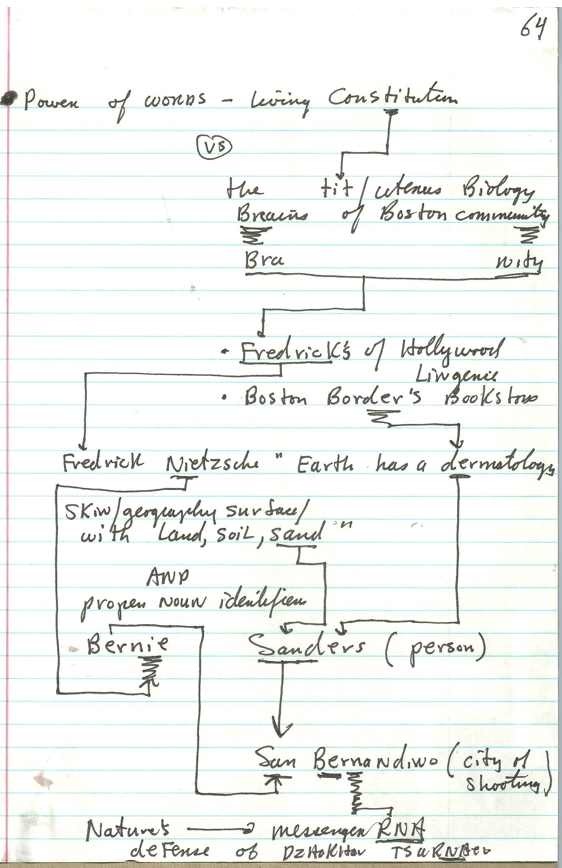 64
Power of words - living Constitution
VS
the tit/uterus Biology
Breains of Boston community
Bra nity
• Fredrick's of Hollywood
Lingence
• Boston Border's Bookstore
Fredrick Nietzsche " Earth has a dermatology
Skin/geography surface/
with Land, soil, sand "
AND
proper noun identifiers
Bernie Sanders (person)
San Bernandino (city of
shooting)
Nature's → messenger RNA
defense of DzHoKHar TSaRNaev